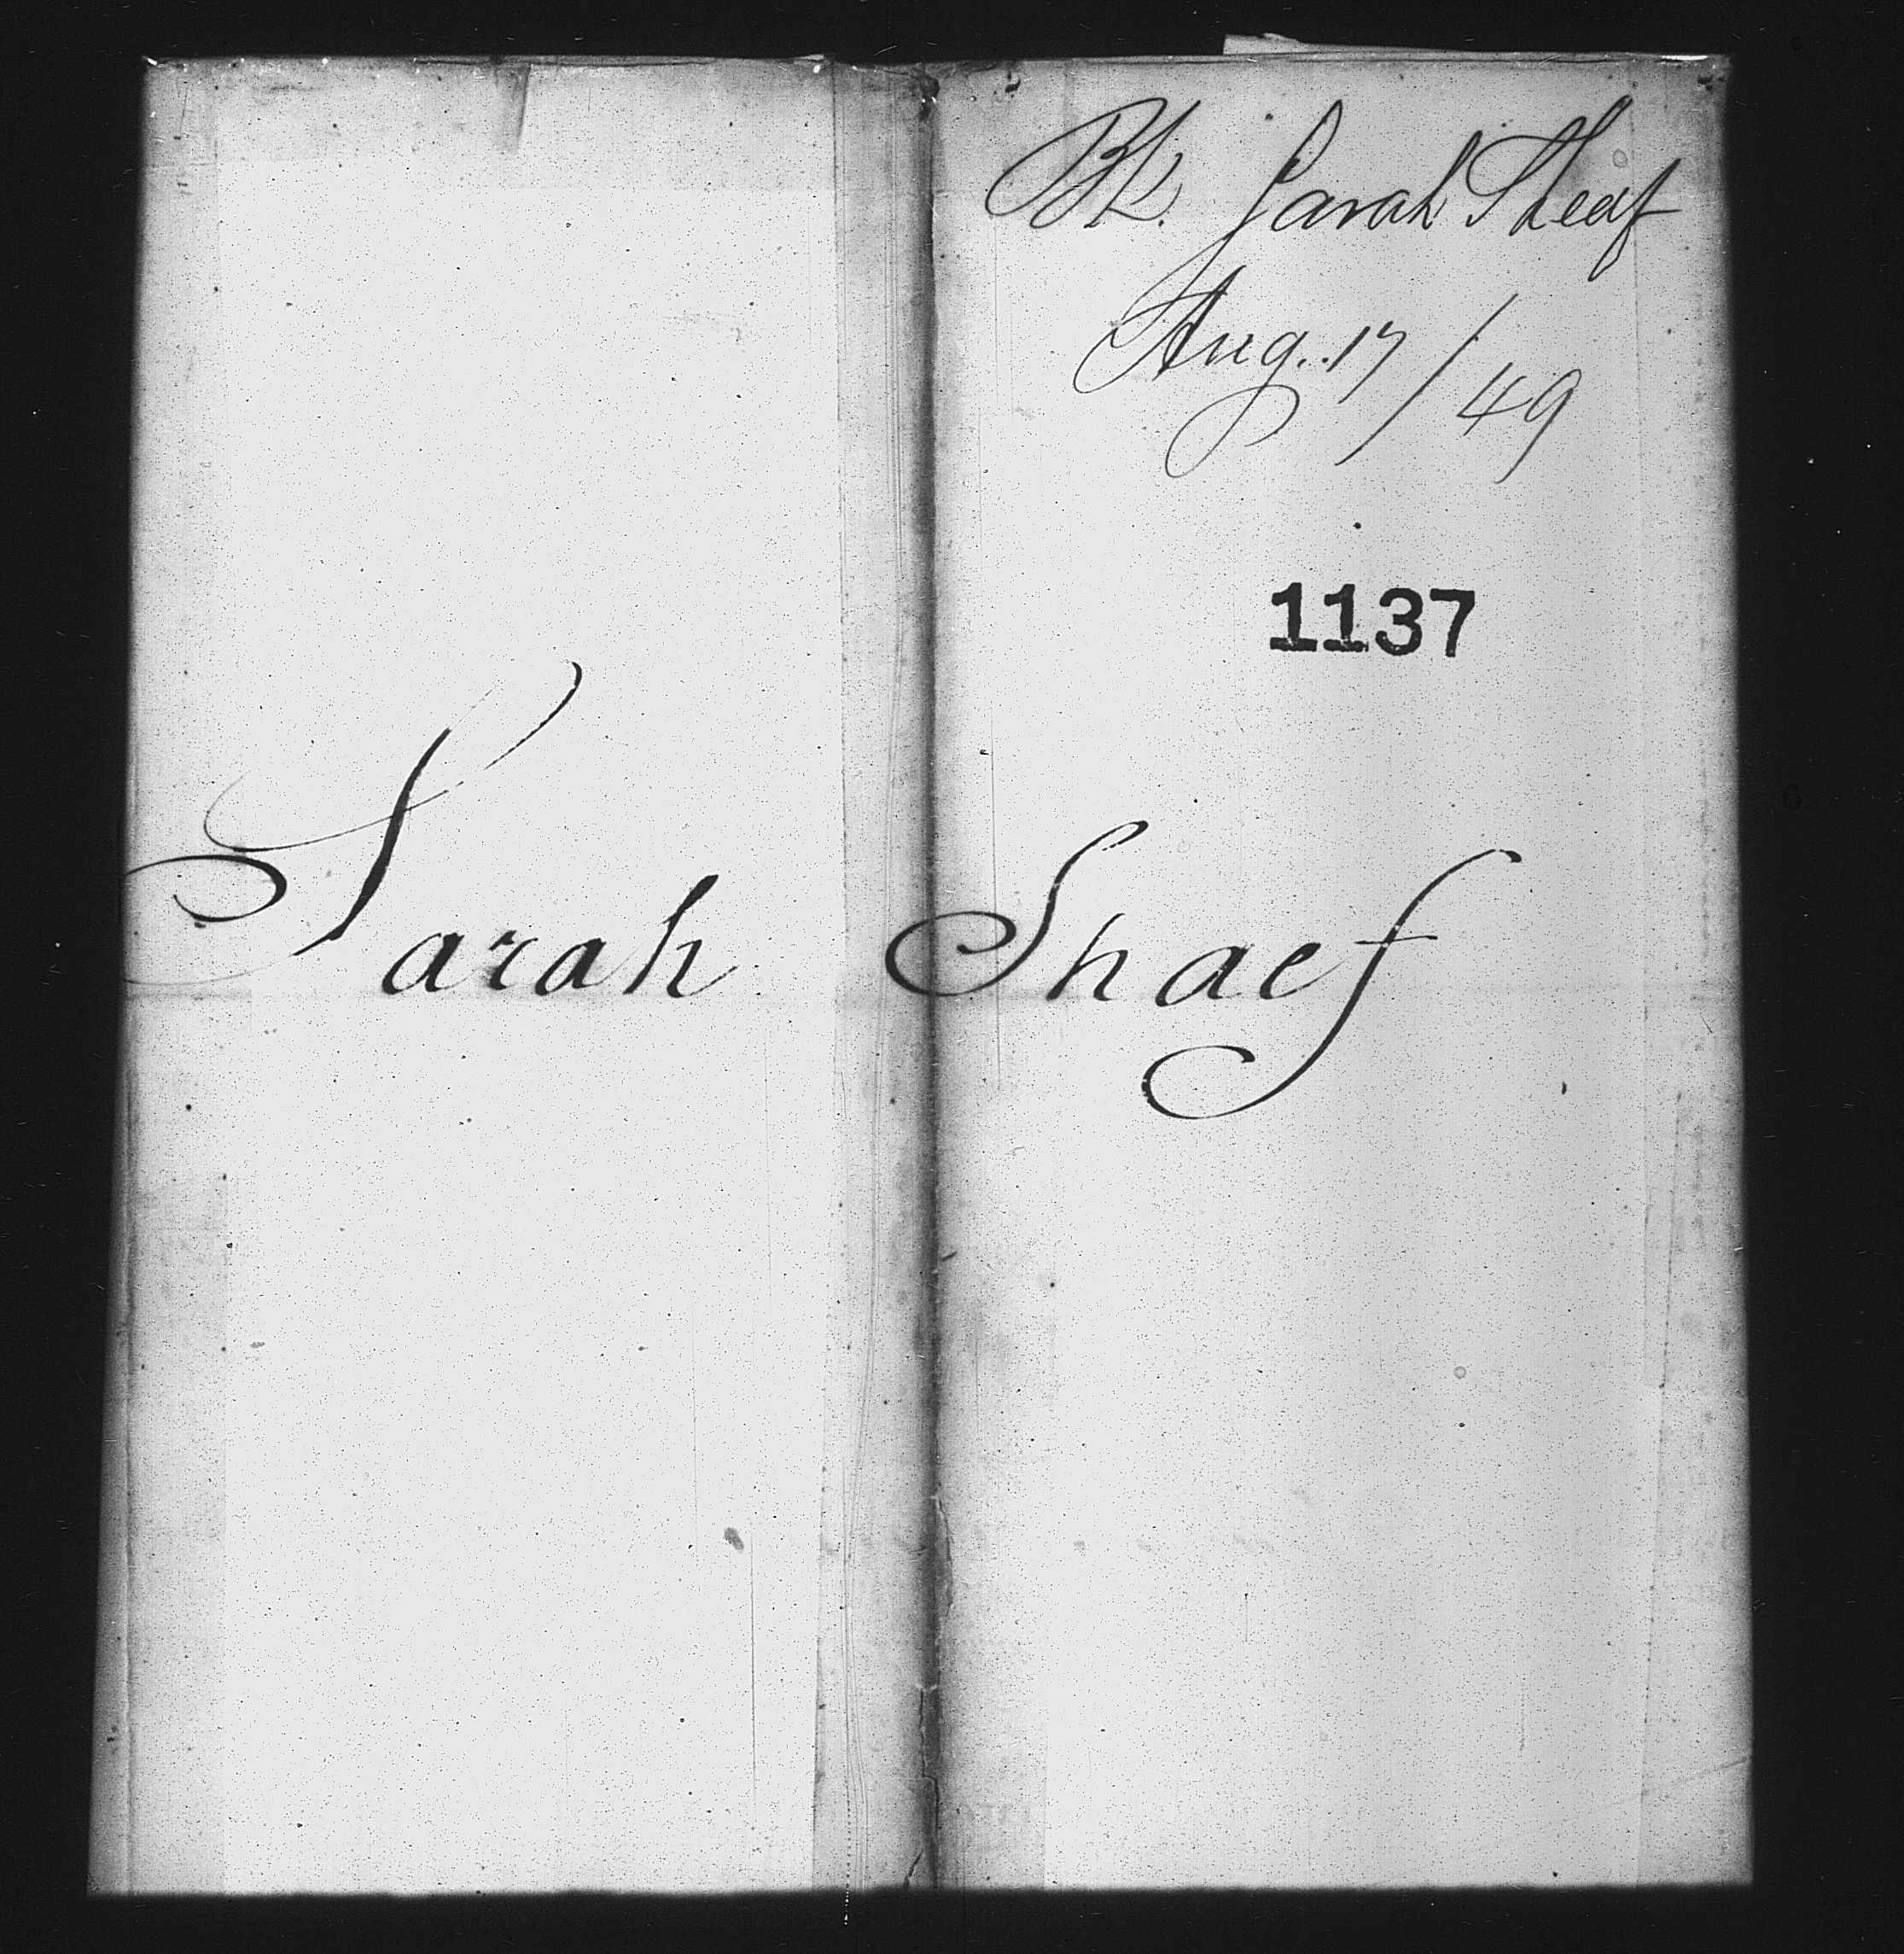 Bk. Sarah Sheaf
Aug. 17/49
1137
Sarah Shaef